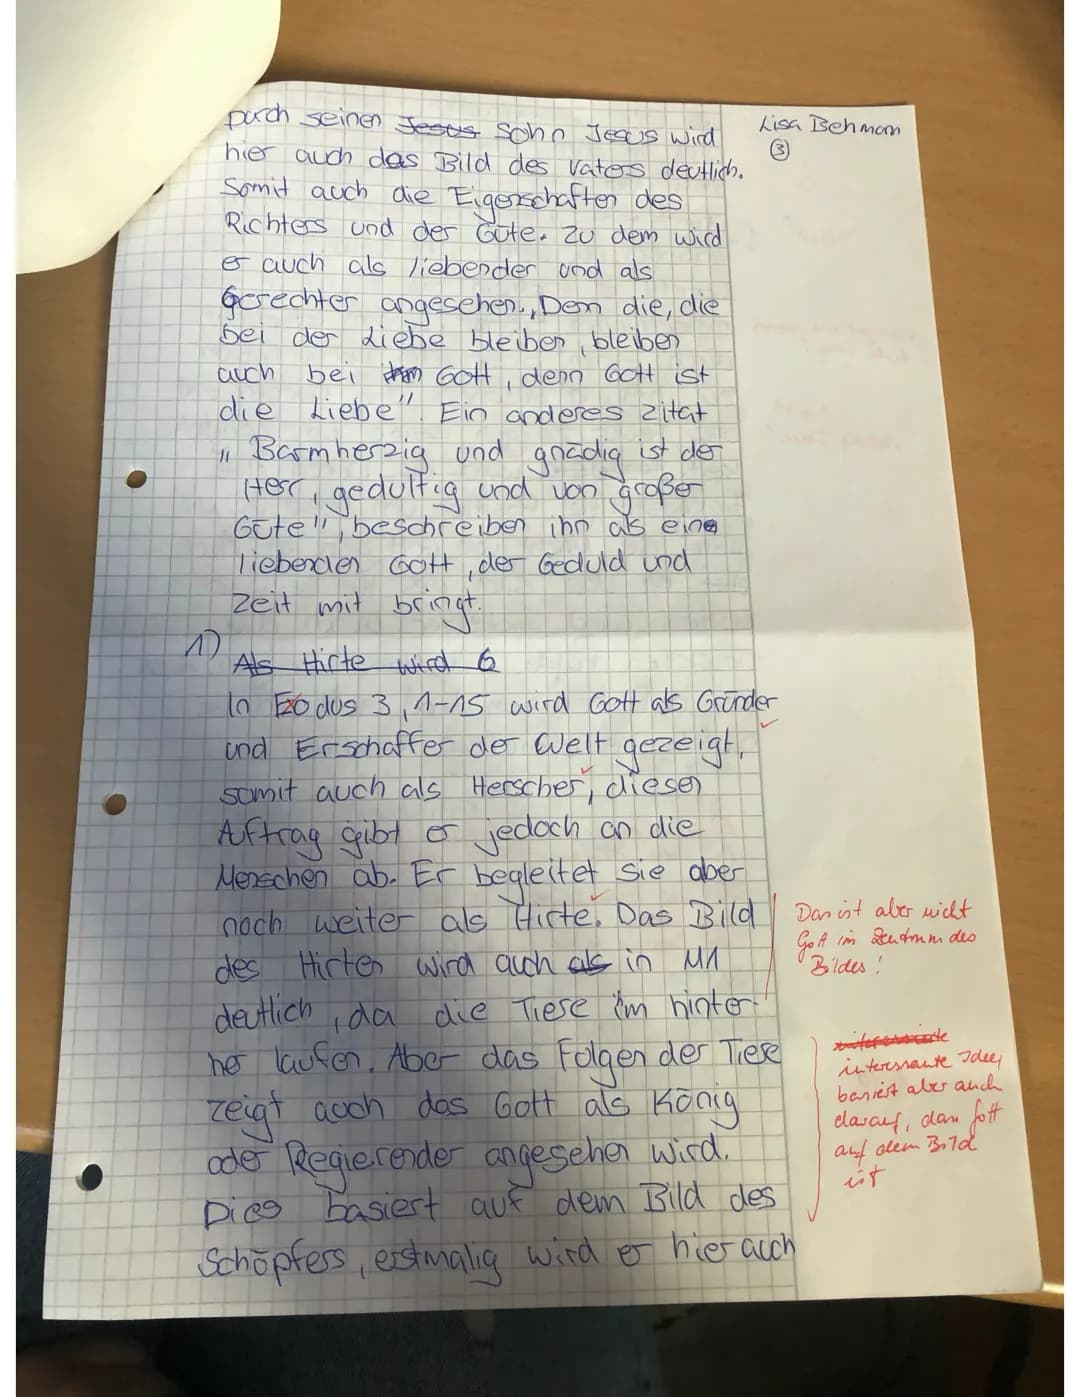 Durch seinen Jesus Sohn Jesus wird
hier auch das Bild des Vaters deutlich.
Somit auch die Eigenschaften des
Richters und der Güte. Zu dem wird
er auch als liebender und als
Gerechter angesehen. „Den die, die
bei der Liebe bleiben, bleiben
auch bei ihm Gott, denn Gott ist
die Liebe". Ein anderes Zitat
„Barmherzig und gnädig ist der
Herr, gedultig und von großer
Güte", beschreiben ihn als eine
liebenden Gott, der Geduld und
Zeit mit bringt.
1) Als Hirte wird G
In Exodus 3,1-15 wird Gott als Gründer
und Erschaffer der Welt gezeigt,
somit auch als Herscher, diesen
Auftrag gibt er jedoch an die
Menschen ab. Er begleitet sie aber
noch weiter als Hirte. Das Bild
des Hirten wird auch als in M1
deutlich, da die Tiese im hinter-
her laufen. Aber das Folgen der Tiese
zeigt auch das Gott als König
oder Regierender angesehen wird.
Dies basiert auf dem Bild des
Schöpfers, erstmalig wird er hier auch
Lisa Behmann
3
Das ist aber nicht
Gott im Zentrum des
Bildes!
interessante Idee,
basiert aber auch
darauf, dass Gott
auf dem Bild
ist